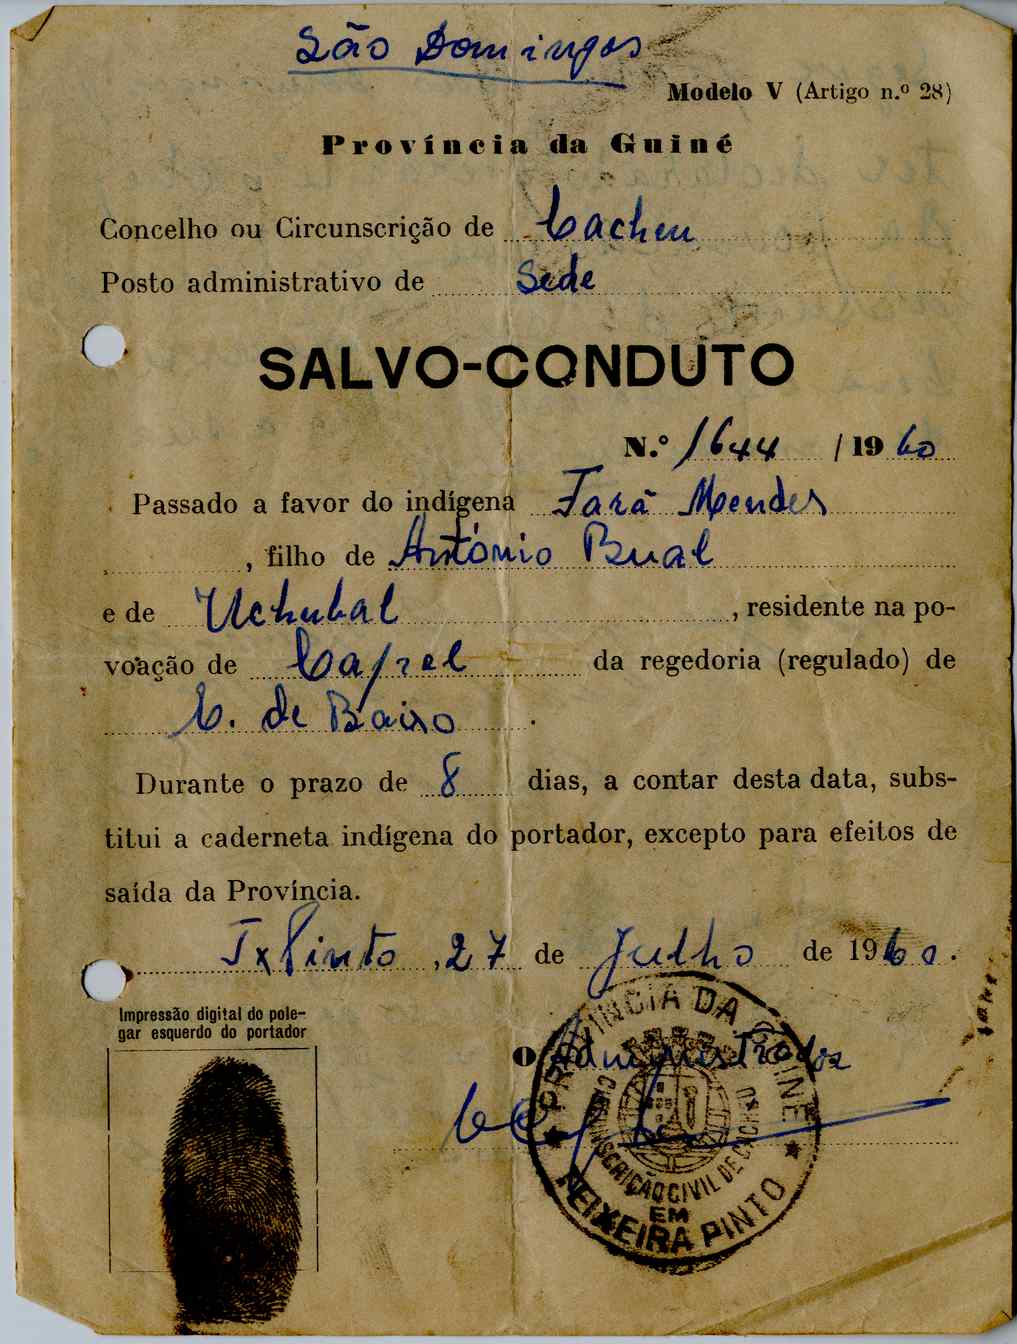 São Domingos
Modelo V (Artigo n.º 28)
Província da Guiné
Concelho ou Circunscrição de Cacheu
Posto administrativo de Sede
SALVO-CONDUTO
N.º 1644 / 1960
Passado a favor do indígena Jará Mendes
, filho de António Bual
e de Uchubal , residente na po-
voação de Capel da regedoria (regulado) de
C. de Baixo .
Durante o prazo de 8 dias, a contar desta data, subs-
titui a caderneta indígena do portador, excepto para efeitos de
saída da Província.
Tx Pinto , 27 de Julho de 1960 .
Impressão digital do pole-
gar esquerdo do portador
O Administrador
PROVINCIA DA GUINÉ
CIRCUNSCRIÇÃO CIVIL DE CACHEU
EM
TEIXEIRA PINTO